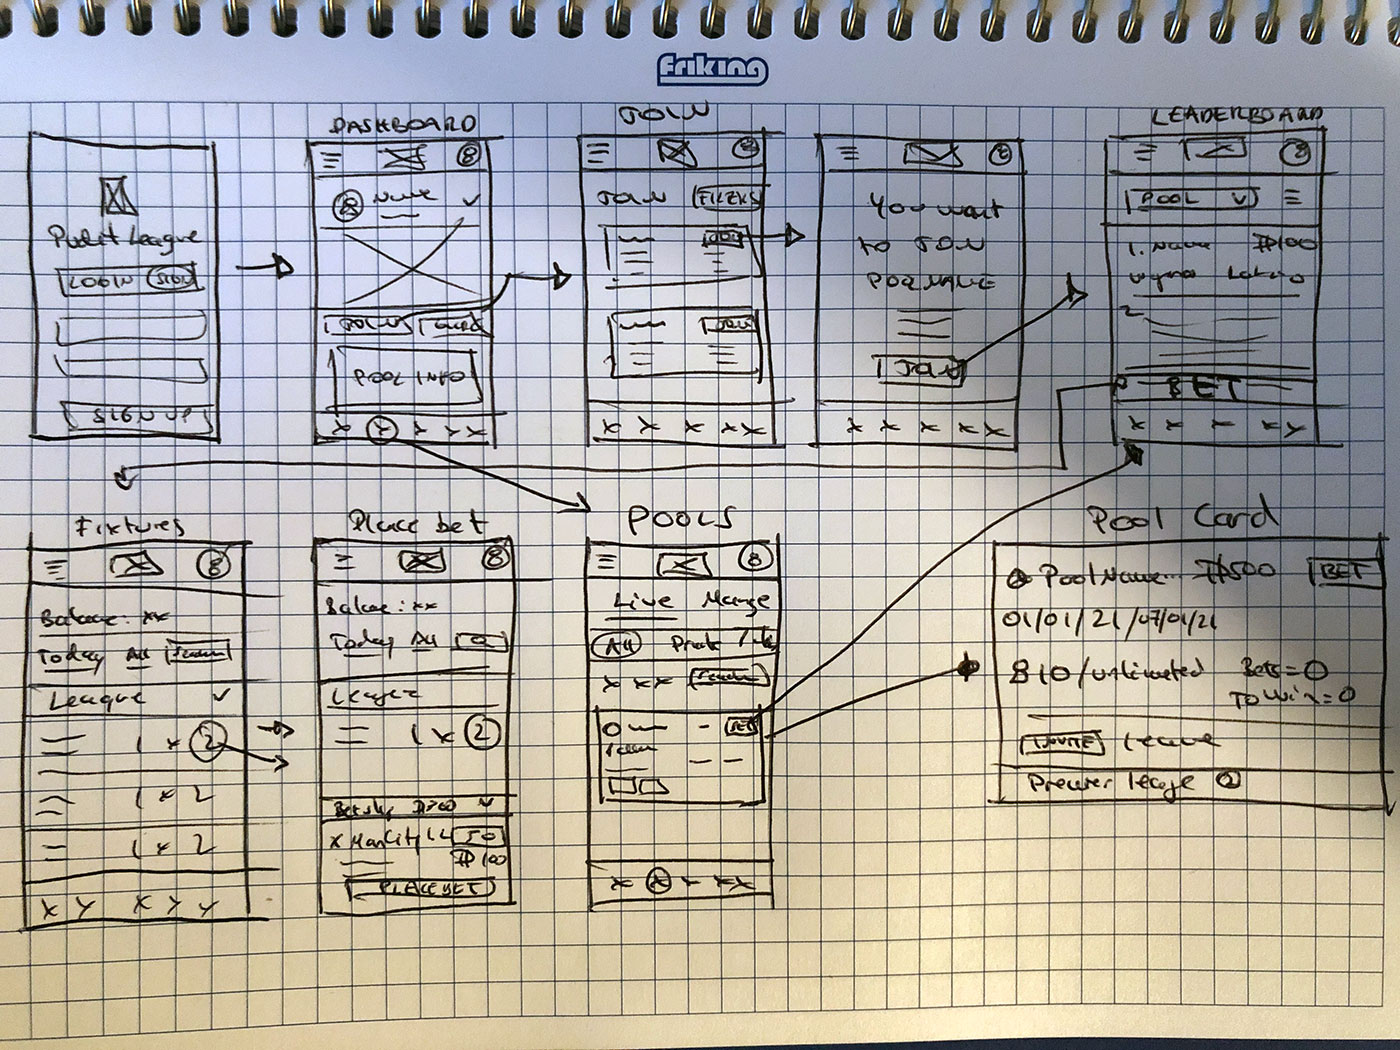 Friking
Pundit League
LOGIN SIGN
SIGN UP
DASHBOARD
Name
JOIN
POOL INFO
JOIN
JOIN FILTERS
JOIN
JOIN
You want
to JOIN
POOL NAME
JOIN
LEADERBOARD
POOL
1. Name ₦100
2
BET
Fixtures
Balance: xx
Today All
League
1 x 2
1 x 2
1 x 2
Place bet
Balance: xx
Today All
League
1 x 2
Betslip
x ManCity 1.4 50
₦100
PLACE BET
POOLS
Live Manage
All
BET
Pool Card
Pool Name ₦500 BET
01/01/21 /07/01/21
810/unlimited Bets=0
To Win=0
INVITE Leave
Premier league